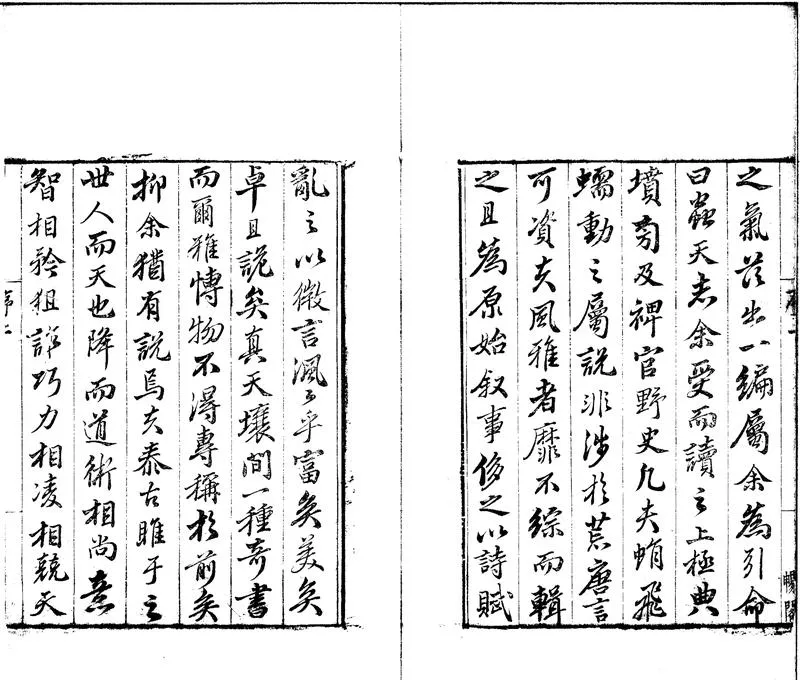 之氣茲出一編屬余為引命
曰蟲天志余受而讀之上極典
墳旁及裨官野史凡夫蜎飛
蠕動之屬說非涉於荒唐言
可資夫風雅者靡不綜而輯
之且為原始叙事侈之以詩賦
亂之以微言渢〻乎富矣美矣
卓且詭矣真天壤間一種奇書
而爾雅博物不得專稱於前矣
抑余猶有說焉夫泰古睢于之
世人而天也降而道術相尚意
智相矜狙詐巧力相凌相競天